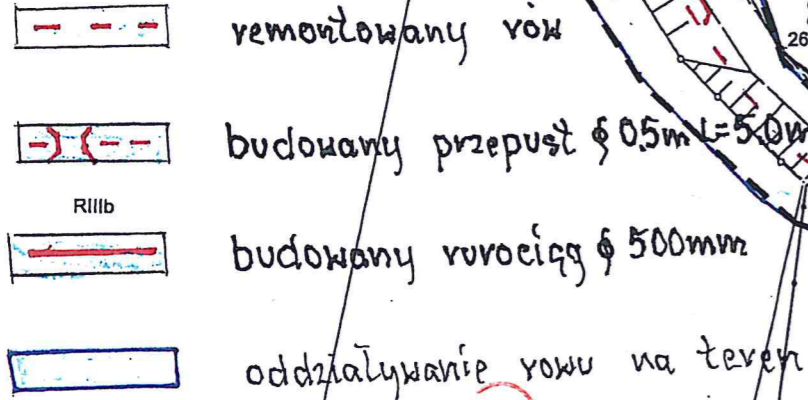 remontowany rów
26
budowany przepust ϕ 0,5m L=5,0m
RIIIb
budowany rurociąg ϕ 500mm
oddziaływanie rowu na teren